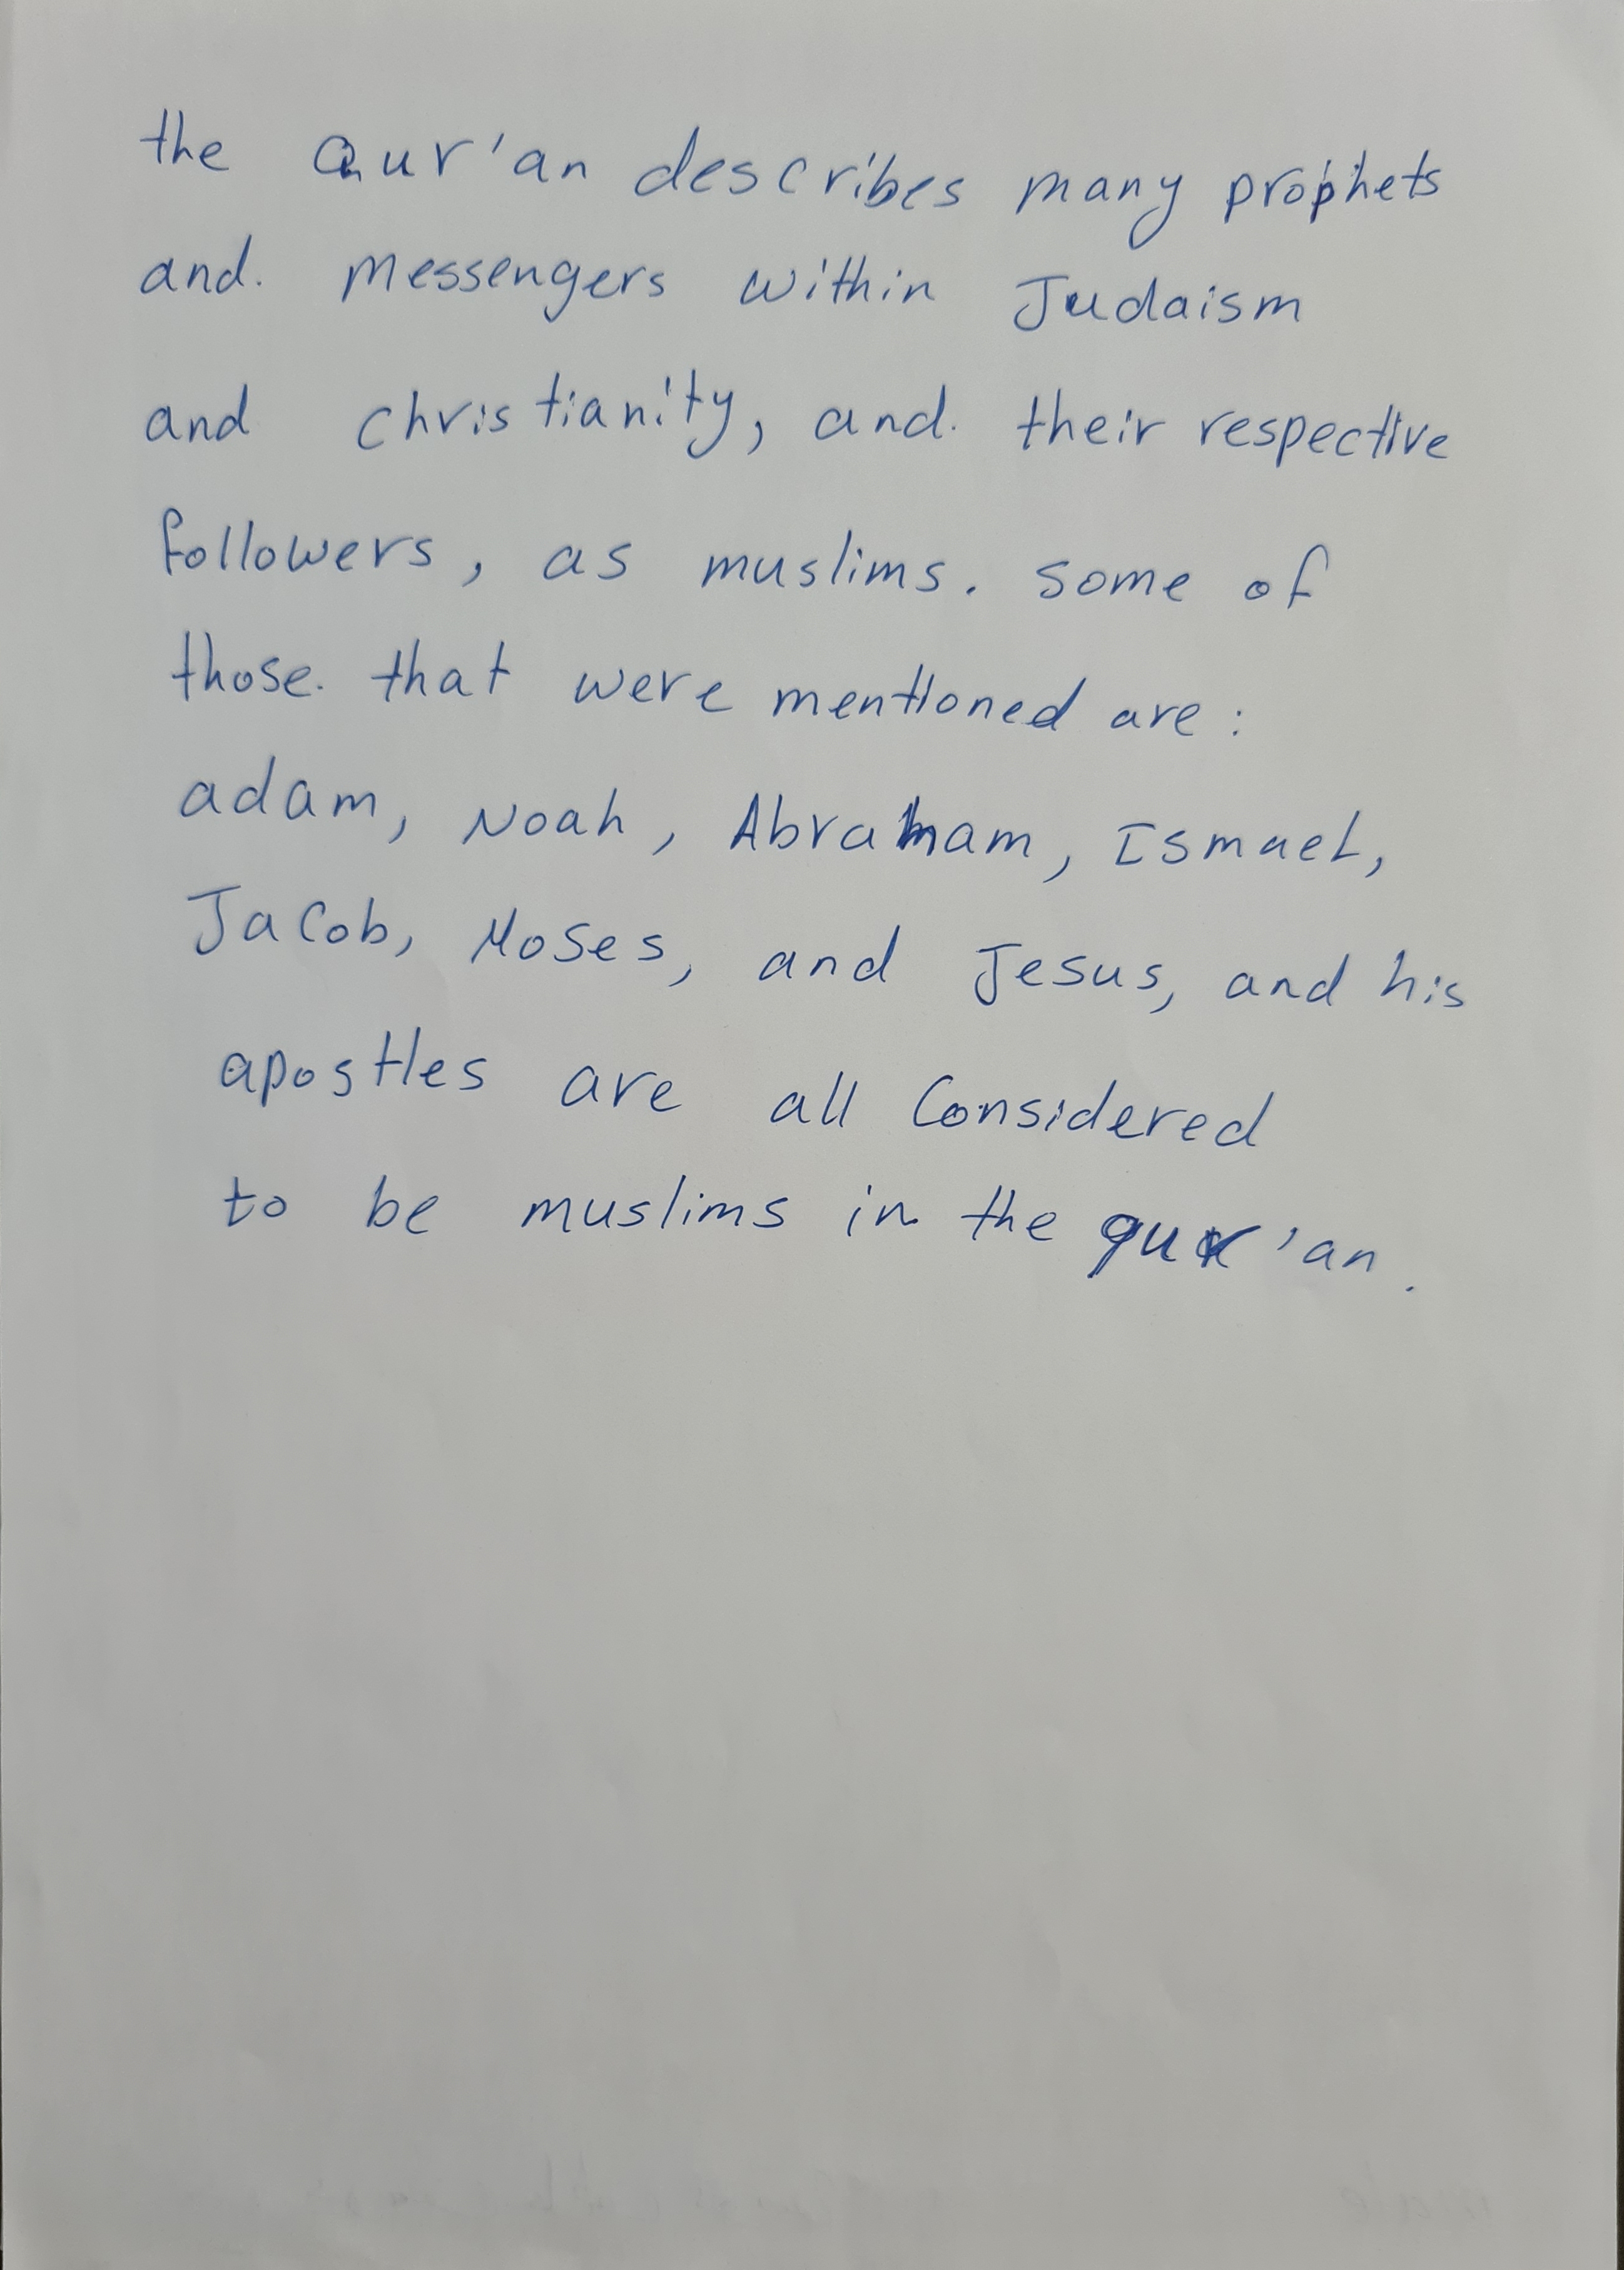 the Qur'an describes many prophets
and. Messengers within Judaism
and christianity, and. their respective
followers, as muslims. some of
those. that were mentioned are:
adam, Noah, Abraham, Ismael,
Jacob, Moses, and Jesus, and his
apostles are all Considered
to be muslims in the qur'an.